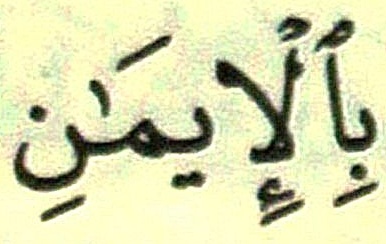 بِٱلْإِيمَـٰنِ